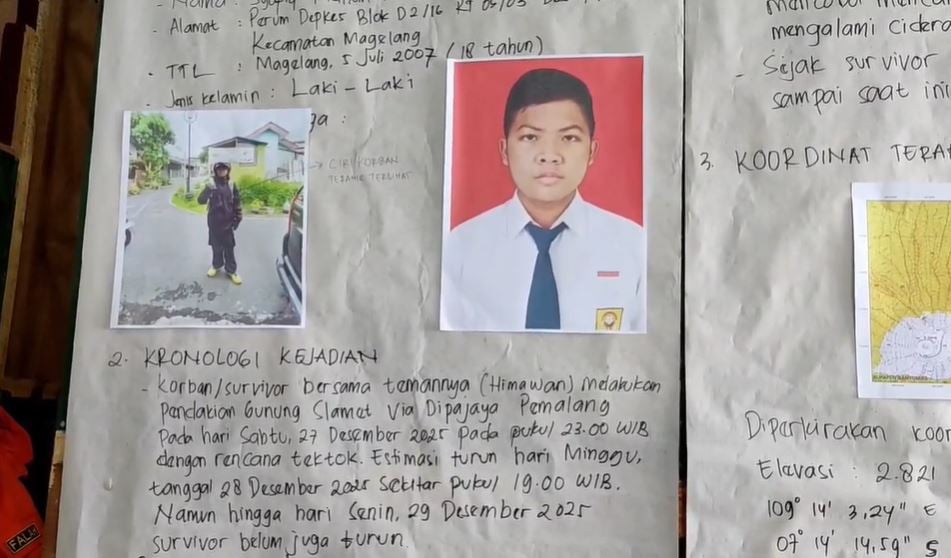 - Nama :
- Alamat : Perum Depkes Blok D2/16 RT 05/03
Kecamatan Magelang
- TTL : Magelang, 5 Juli 2007 (18 tahun)
- Jenis kelamin : Laki - Laki
ga :
→ CIRI KORBAN
TERAKHIR TERLIHAT
2. KRONOLOGI KEJADIAN
- Korban/survivor bersama temannya (Himawan) melakukan
Pendakian Gunung Slamet Via Dipajaya Pemalang
Pada hari Sabtu, 27 Desember 2025 Pada pukul 23.00 WIB
dengan rencana tektok. Estimasi turun hari Minggu,
tanggal 28 Desember 2025 Sekitar pukul 19.00 WIB.
Namun hingga hari Senin, 29 Desember 2025
survivor belum juga turun.
mengalami cidera
- Sejak survivor
sampai saat ini
3. KOORDINAT TERA
Diperkirakan koor
Elevasi : 2.821
109° 14' 3,24" E
07° 14' 14,59" S